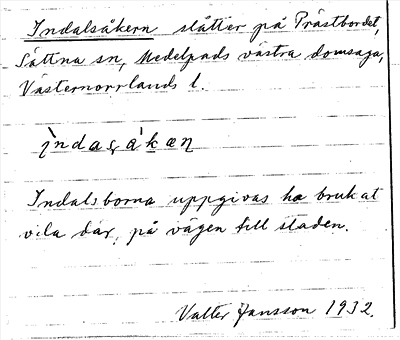 Indalsåkern slåtter på Prästbordet,
Sättna sn, Medelpads västra domsaga,
Västernorrlands l.
ìndasǻkæn
Indalsborna uppgivas ha brukat
vila där, på vägen till staden.
Valter Jansson 1932.